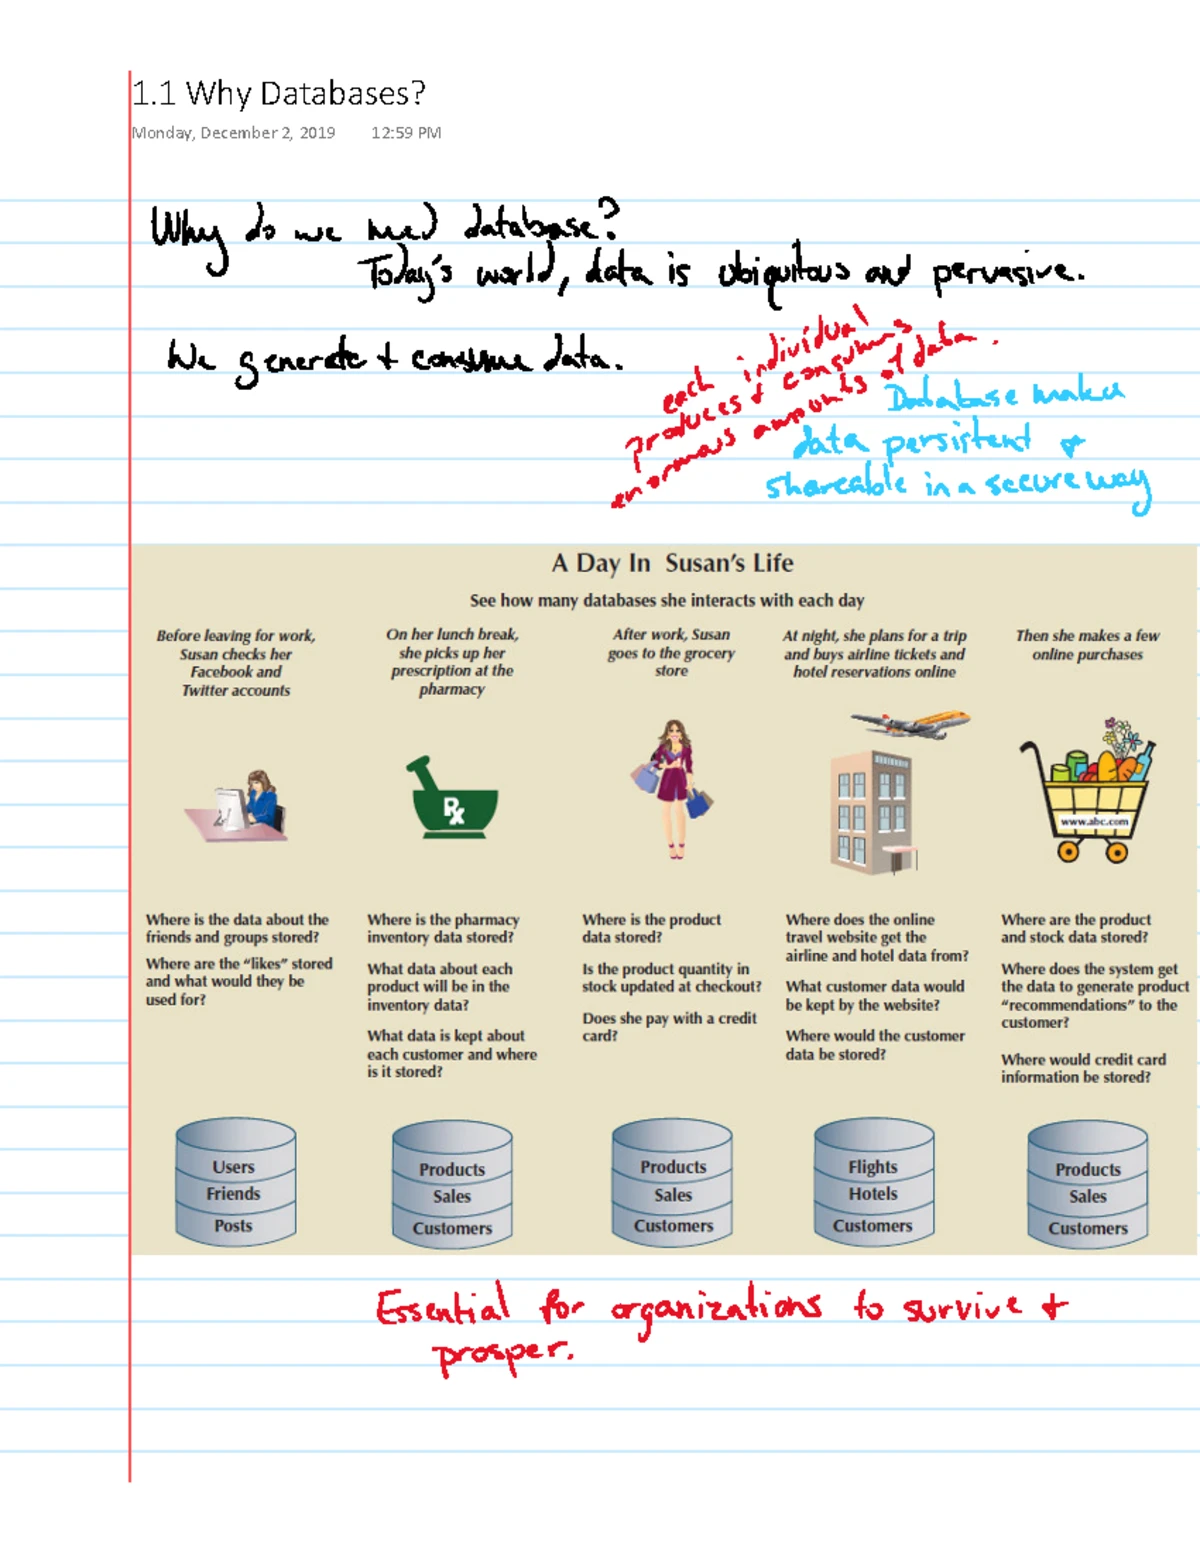 1.1 Why Databases?
Monday, December 2, 2019 12:59 PM
Why do we need database?
Today's world, data is ubiquitous and pervasive.
We generate + consume data.
each individual
produces & consumes
enormous amounts of data.
Database makes
data persistent &
shareable in a secure way
A Day In Susan's Life
See how many databases she interacts with each day
Before leaving for work,
Susan checks her
Facebook and
Twitter accounts
On her lunch break,
she picks up her
prescription at the
pharmacy
After work, Susan
goes to the grocery
store
At night, she plans for a trip
and buys airline tickets and
hotel reservations online
Then she makes a few
online purchases
Rx
www.abc.com
Where is the data about the
friends and groups stored?
Where are the “likes” stored
and what would they be
used for?
Where is the pharmacy
inventory data stored?
What data about each
product will be in the
inventory data?
What data is kept about
each customer and where
is it stored?
Where is the product
data stored?
Is the product quantity in
stock updated at checkout?
Does she pay with a credit
card?
Where does the online
travel website get the
airline and hotel data from?
What customer data would
be kept by the website?
Where would the customer
data be stored?
Where are the product
and stock data stored?
Where does the system get
the data to generate product
“recommendations” to the
customer?
Where would credit card
information be stored?
Users
Friends
Posts
Products
Sales
Customers
Products
Sales
Customers
Flights
Hotels
Customers
Products
Sales
Customers
Essential for organizations to survive +
prosper.